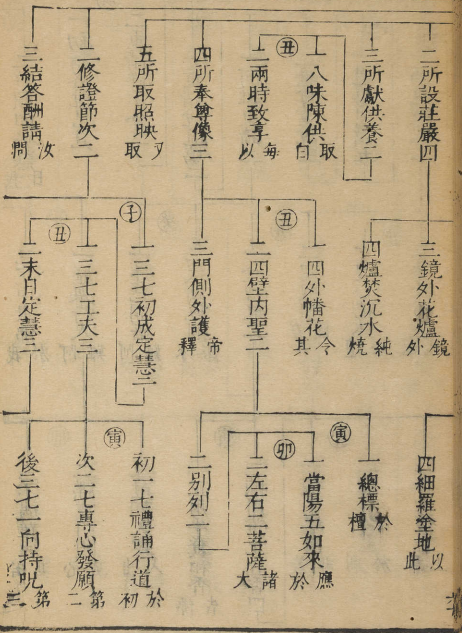 二所設莊嚴四
三所獻供養二
一八味陳供 取白
丑
二兩時致享 每以
四所奉尊像三
五所取照映 又取
二修證節次二
三結答酬請 汝問
三鏡外花爐 鏡外
四爐焚沉水 純燒
一四外幡花 令其
丑
二四壁内聖二
三門側外護 帝釋
一三七初成定慧三
子
一三七工夫三
二末自定慧三
丑
四細羅塗地 以此
一總標 於壇
寅
一當陽五如來 應於
卯
二左右二菩薩 諸大
二別列二
初一七禮誦行道 於初
寅
次二七專心發願 第二
後三七一向持呪 第三